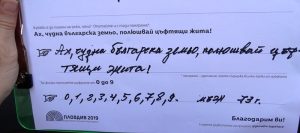 Ах, чудна българска земьо, полюшвай цъфтящи жита!
Ах, чудна българска земьо, полюшвай цъф
тящи жита!
0 до 9
0, 1, 2, 3, 4, 5, 6, 7, 8, 9. мъж 73 г.
ПЛОВДИВ 2019
Благодарим ви!